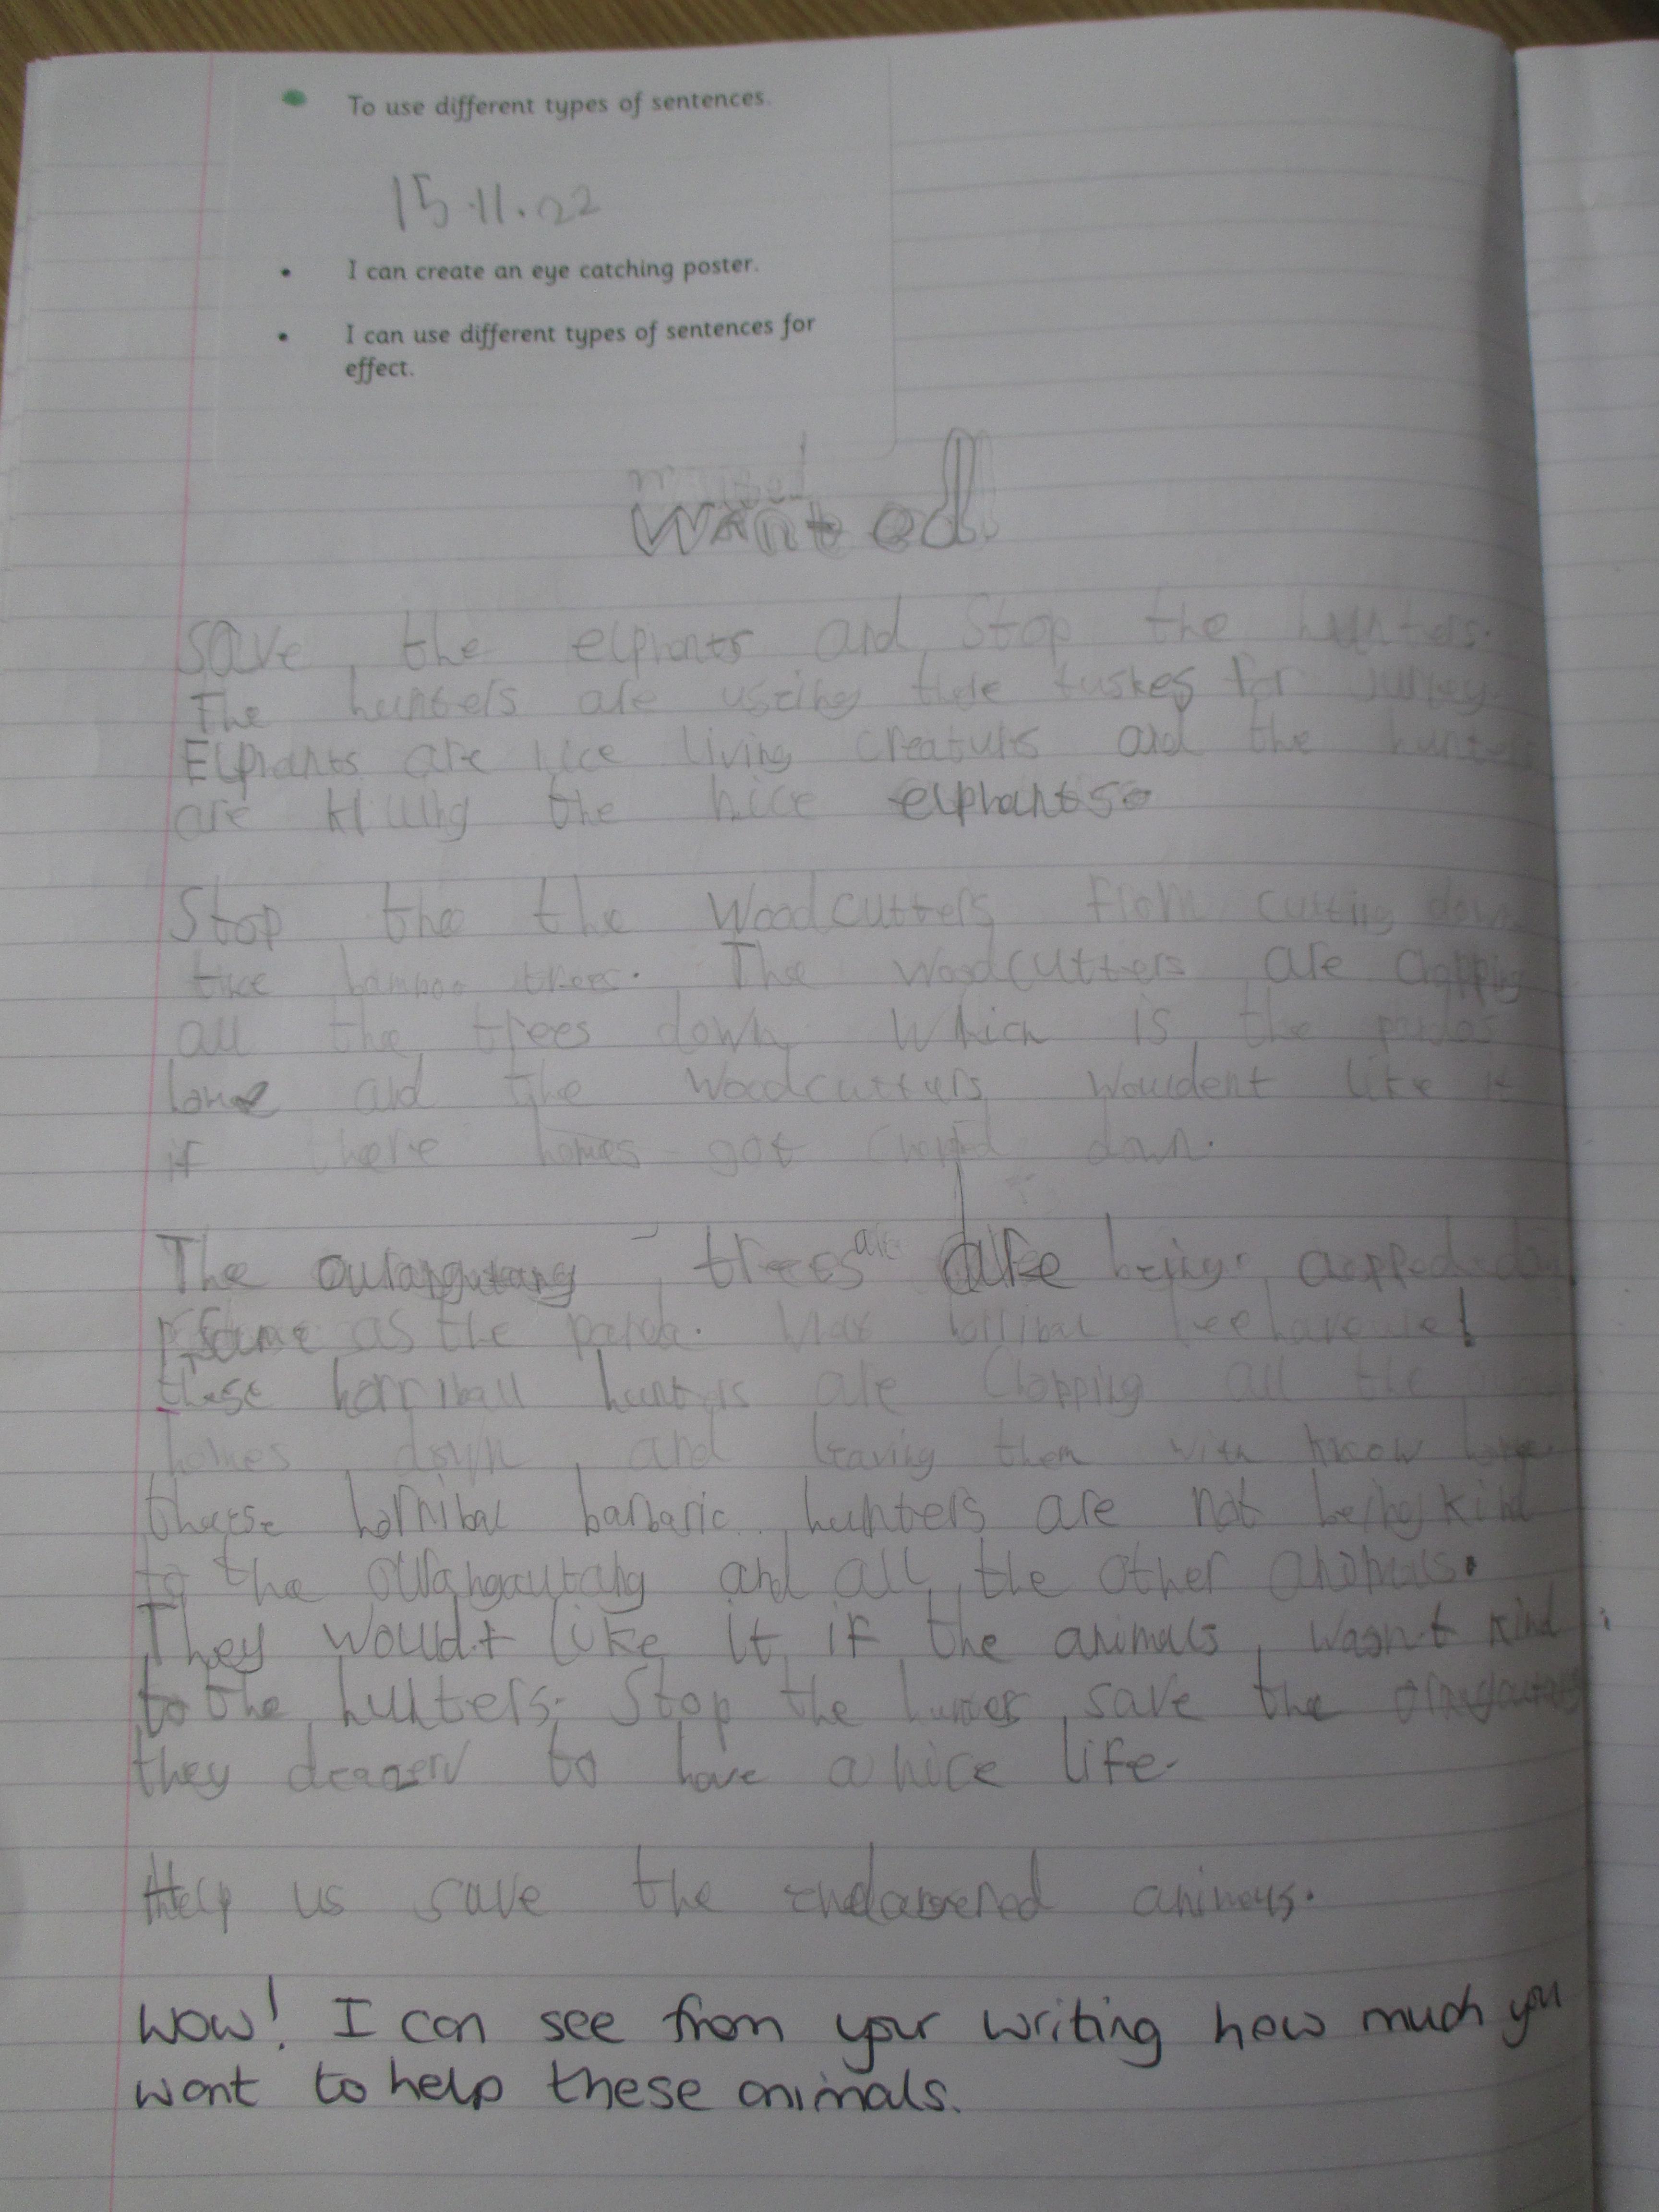 To use different types of sentences.
15.11.22
I can create an eye catching poster.
I can use different types of sentences for
effect.
wanted!
Save the elphants and Stop the hunters.
The hunters are useing there tuskes for
Elphants are nice living creaturs and the hunters
are killing the nice elphants.
Stop the the Woodcutters from cutting down
the bamboo trees. The woodcutters are chopping
all the trees down which is the pandas
and the woodcutters wouldent like it
if there homes got chopped down.
The ourangutang trees are being down
same as the panda. horribal
these horriball hunters are Chopping all the
homes down and leaving them with know
these horribal barbaric hunters are not being kind
to the ourangautang and all the other animals.
They would't like it if the animals wasn't kind
to the hunters. Stop the hunters save the
they to have a nice life.
Help us save the animals.
Wow! I can see from your writing how much you
want to help these animals.